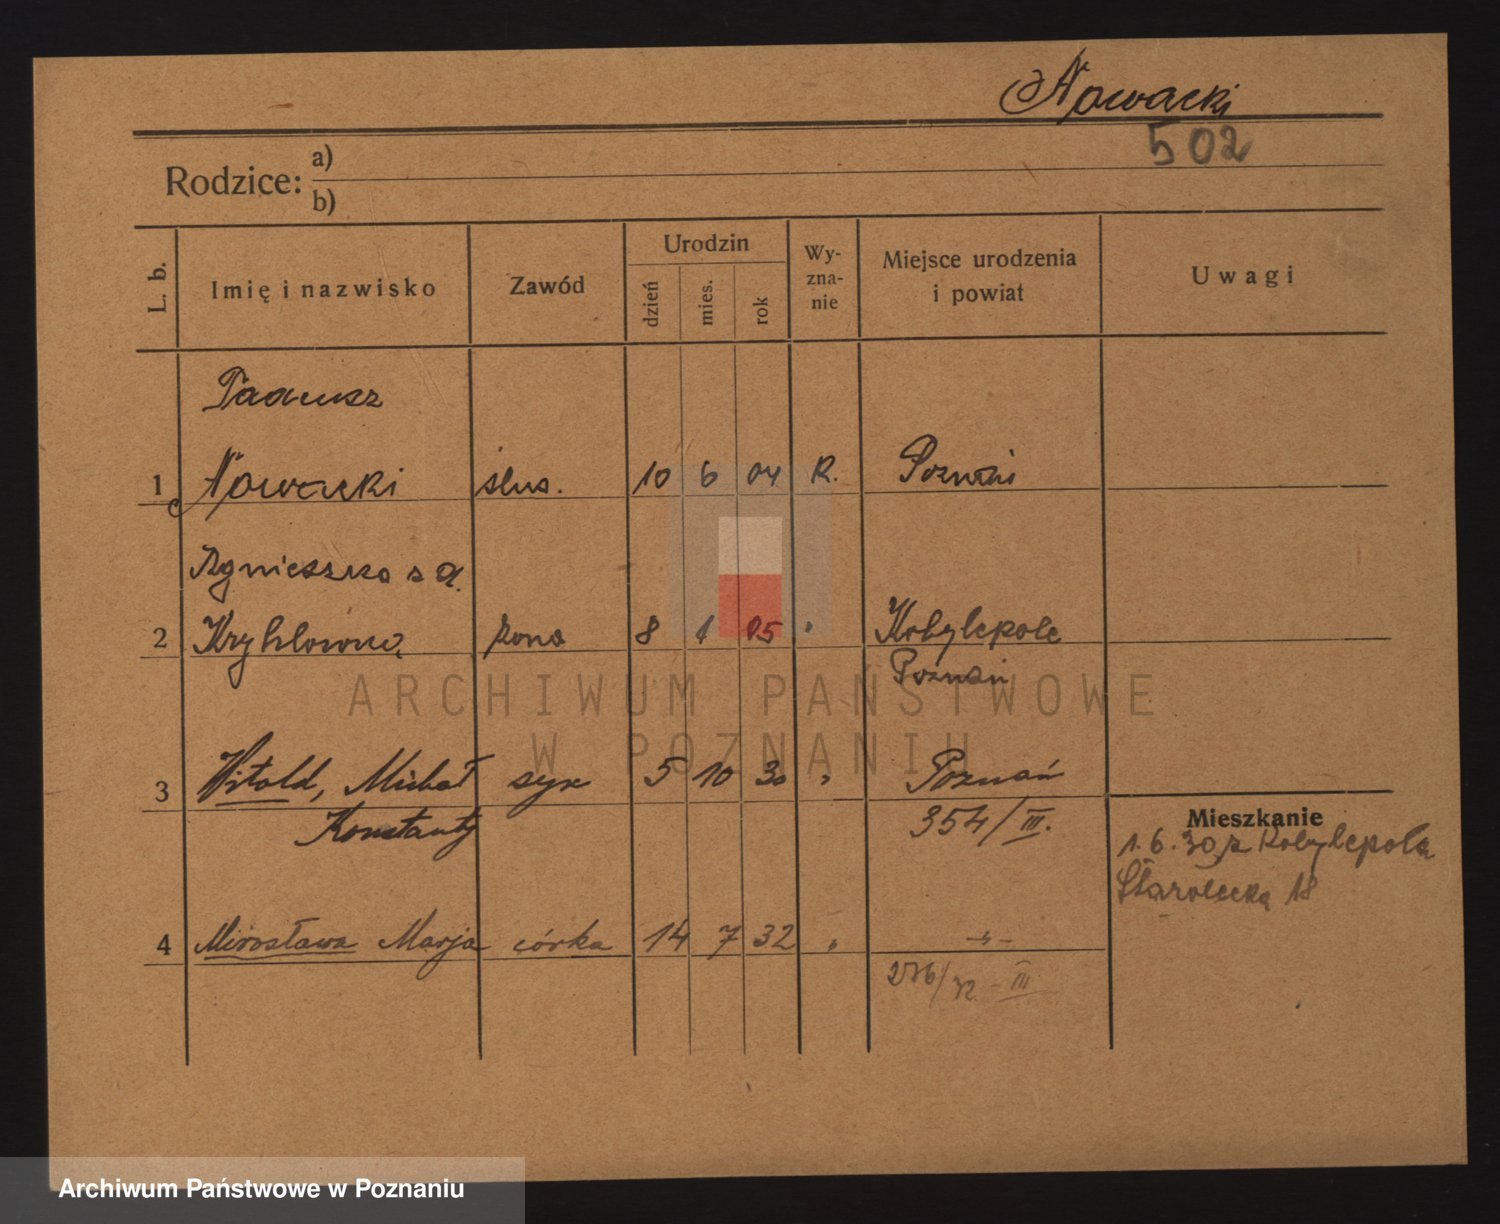 Nowacki
502
Rodzice: a)
b)
L. b. Imię i nazwisko Zawód Urodzin dzień mies. rok Wy-zna-nie Miejsce urodzenia i powiat Uwagi
Tadeusz
1 Nowacki ślus. 10 6 04 R. Poznań
Agnieszka z d.
2 żona 8 1 05 " Kobylepole
Poznań
ARCHIWUM PAŃSTWOWE
W POZNANIU
3 Witold, Michał syn 5 10 30 " Poznań
Konstanty 354/III.
Mieszkanie
1.6.30 z Kobylepola
Starołęcka 18
4 Mirosława Marja córka 14 7 32 " -"-
276/32 - III
Archiwum Państwowe w Poznaniu